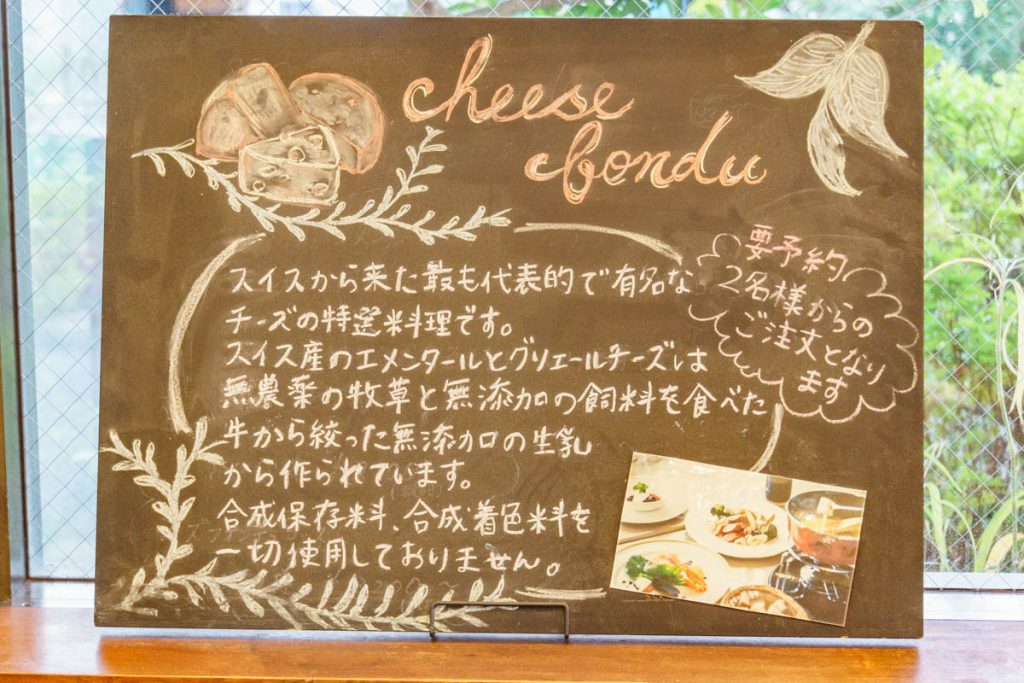 cheese
fondu
要予約
2名様からの
ご注文となり
ます
スイスから来た最も代表的で有名な
チーズの特選料理です。
スイス産のエメンタールとグリエールチーズは
無農薬の牧草と無添加の飼料を食べた
牛から絞った無添加の生乳
から作られています。
合成保存料、合成着色料を
一切使用しておりません。